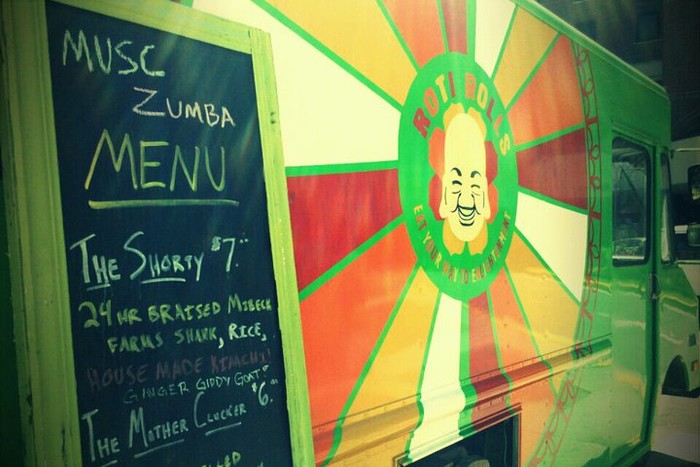 MUSC
ZUMBA
MENU
THE SHORTY $7.
24 HR BRAISED MIBECK
FARMS SHANK, RICE,
HOUSE MADE KIMCHI!
GINGER GIDDY GOAT.
THE MOTHER CLUCKER $6.
ROTI ROLLS
EAT YOUR WAY